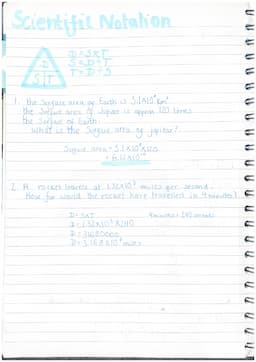 Scientific Notation
D
S T
D = S x T
S = D ÷ T
T = D ÷ S
1. the surface area of Earth is 5.1x10⁸ km²
the surface area of Jupiter is approx 120 times
the surface of Earth.
what is the surface area of jupiter?
Surface area = 5.1x10⁸x120
= 6.12x10¹⁰
2. A rocket travels at 1.32x10⁵ miles per second.
How far would the rocket have travelled in 4 minutes?
D = SxT
4 minutes = 240 seconds
D = 1.32x10⁵x240
D = 31680000
D = 3.168x10⁷ miles